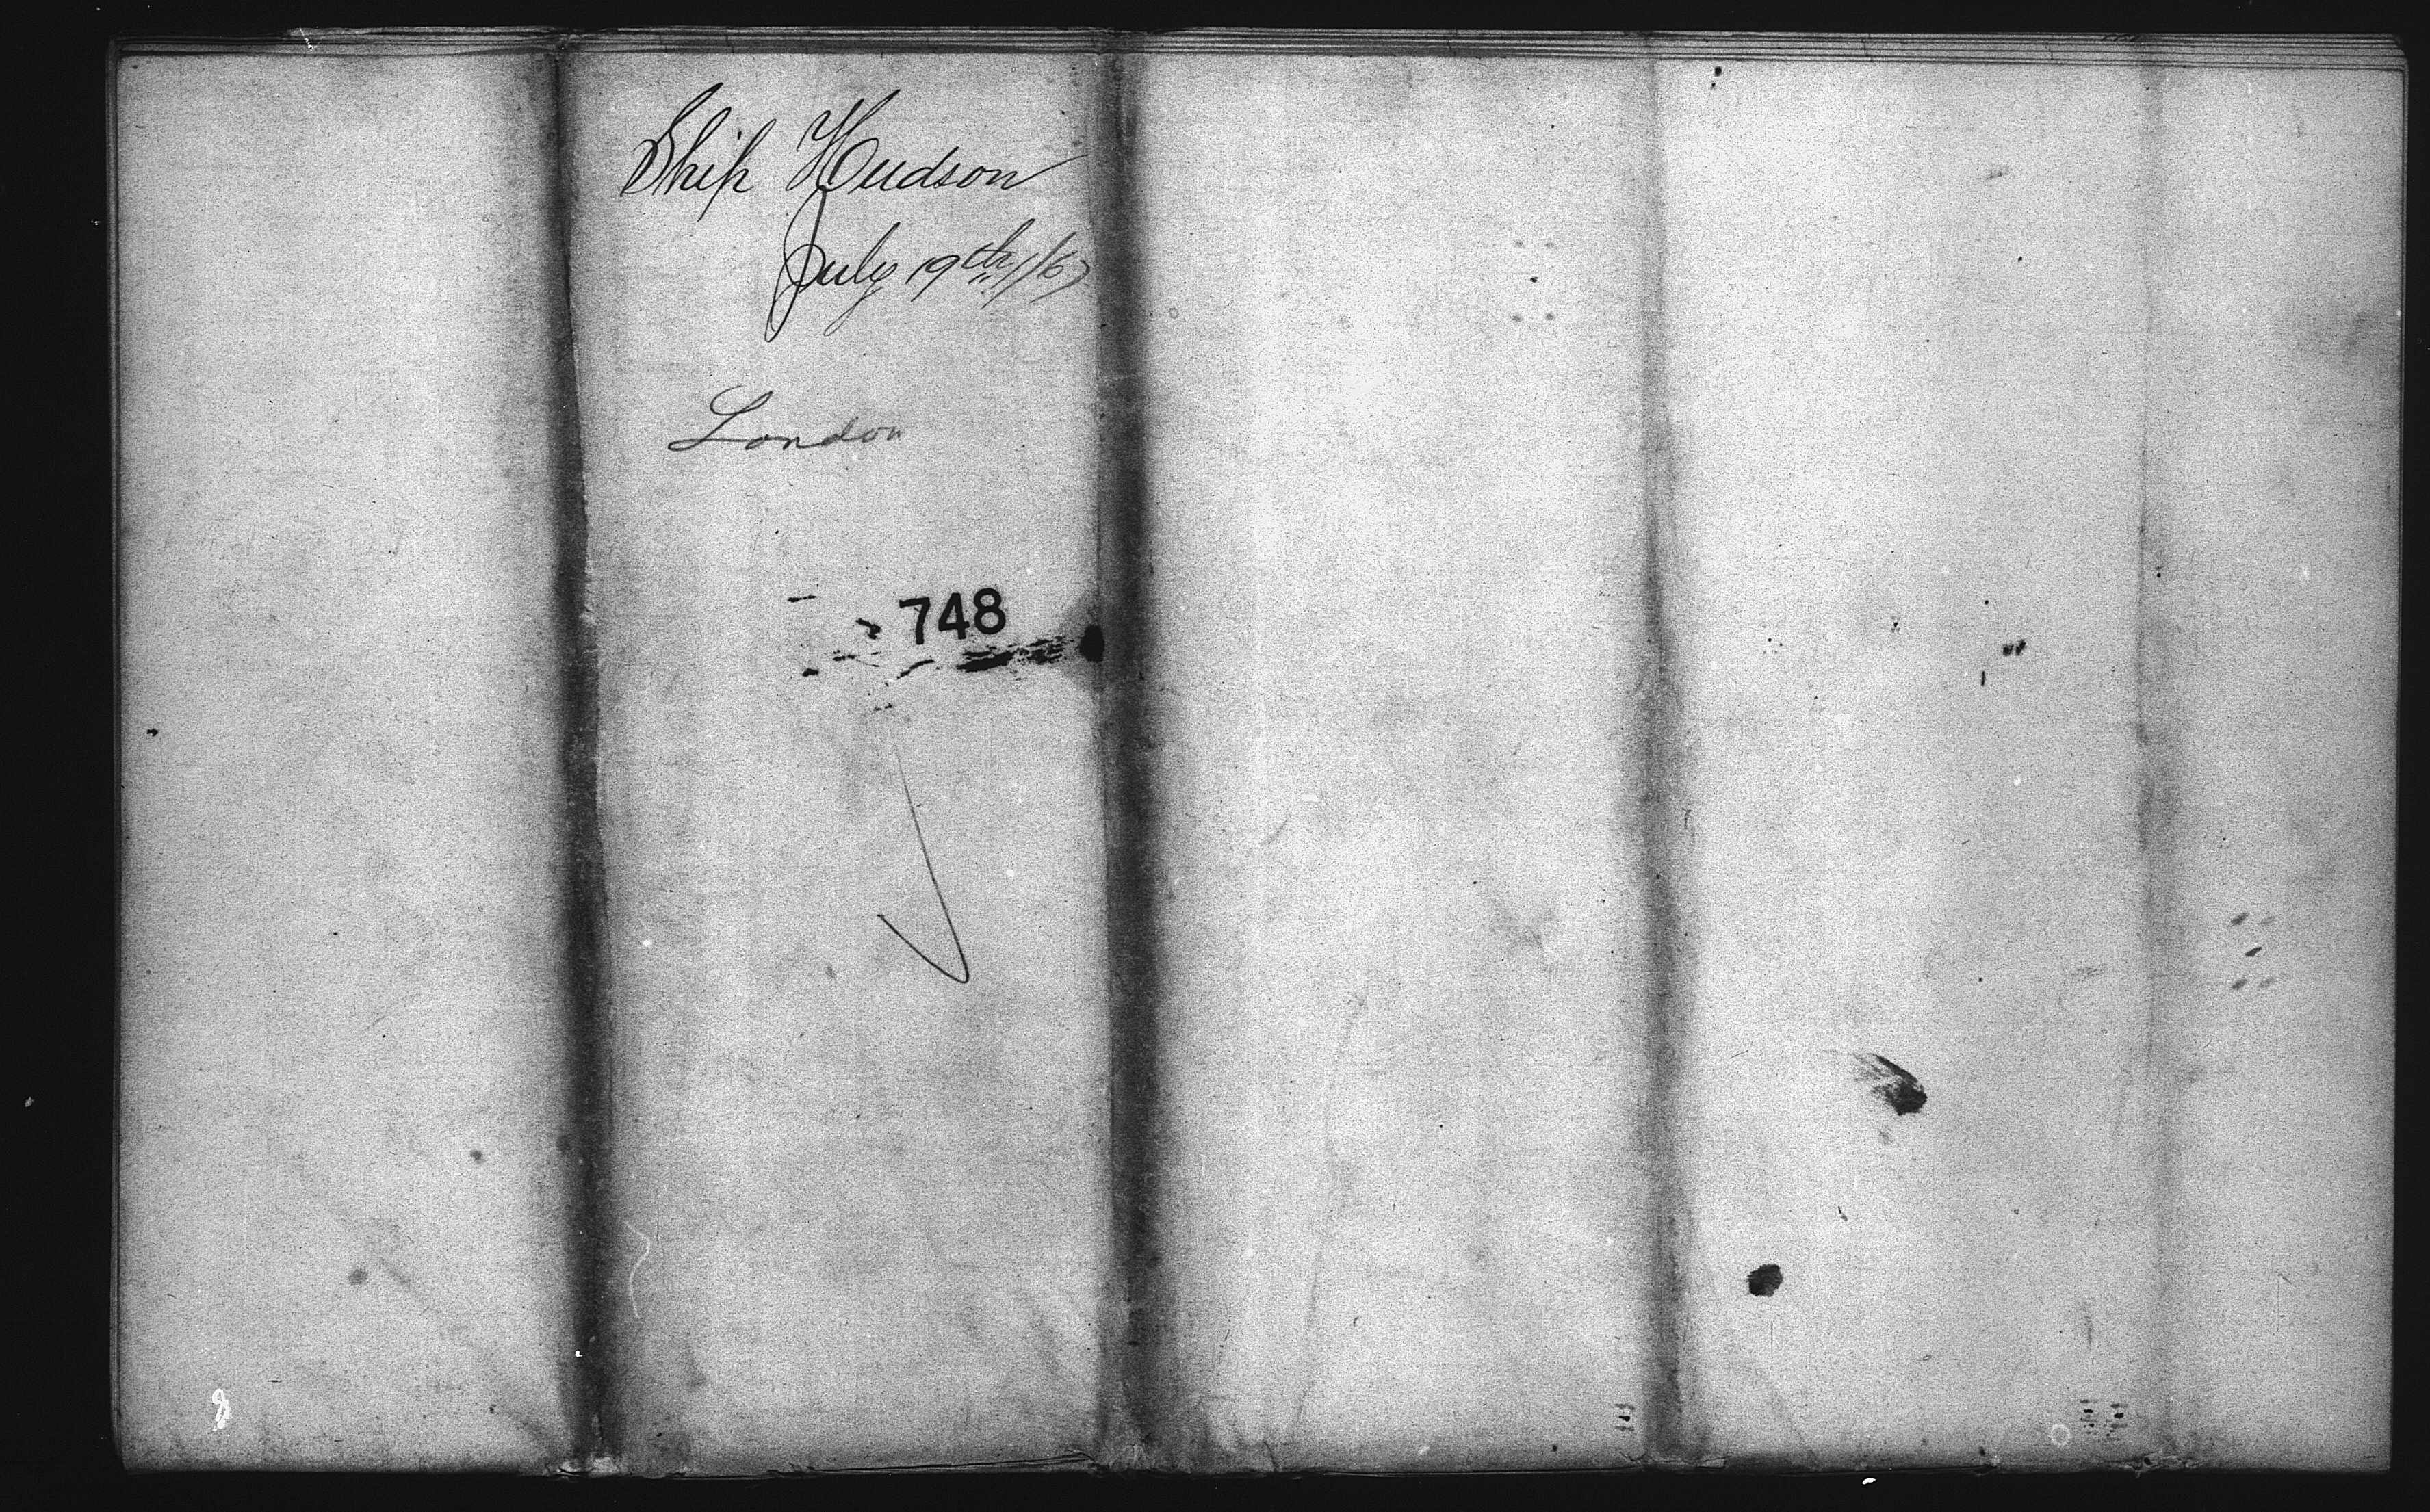 Ship Hudson
July 19th /67
London
748